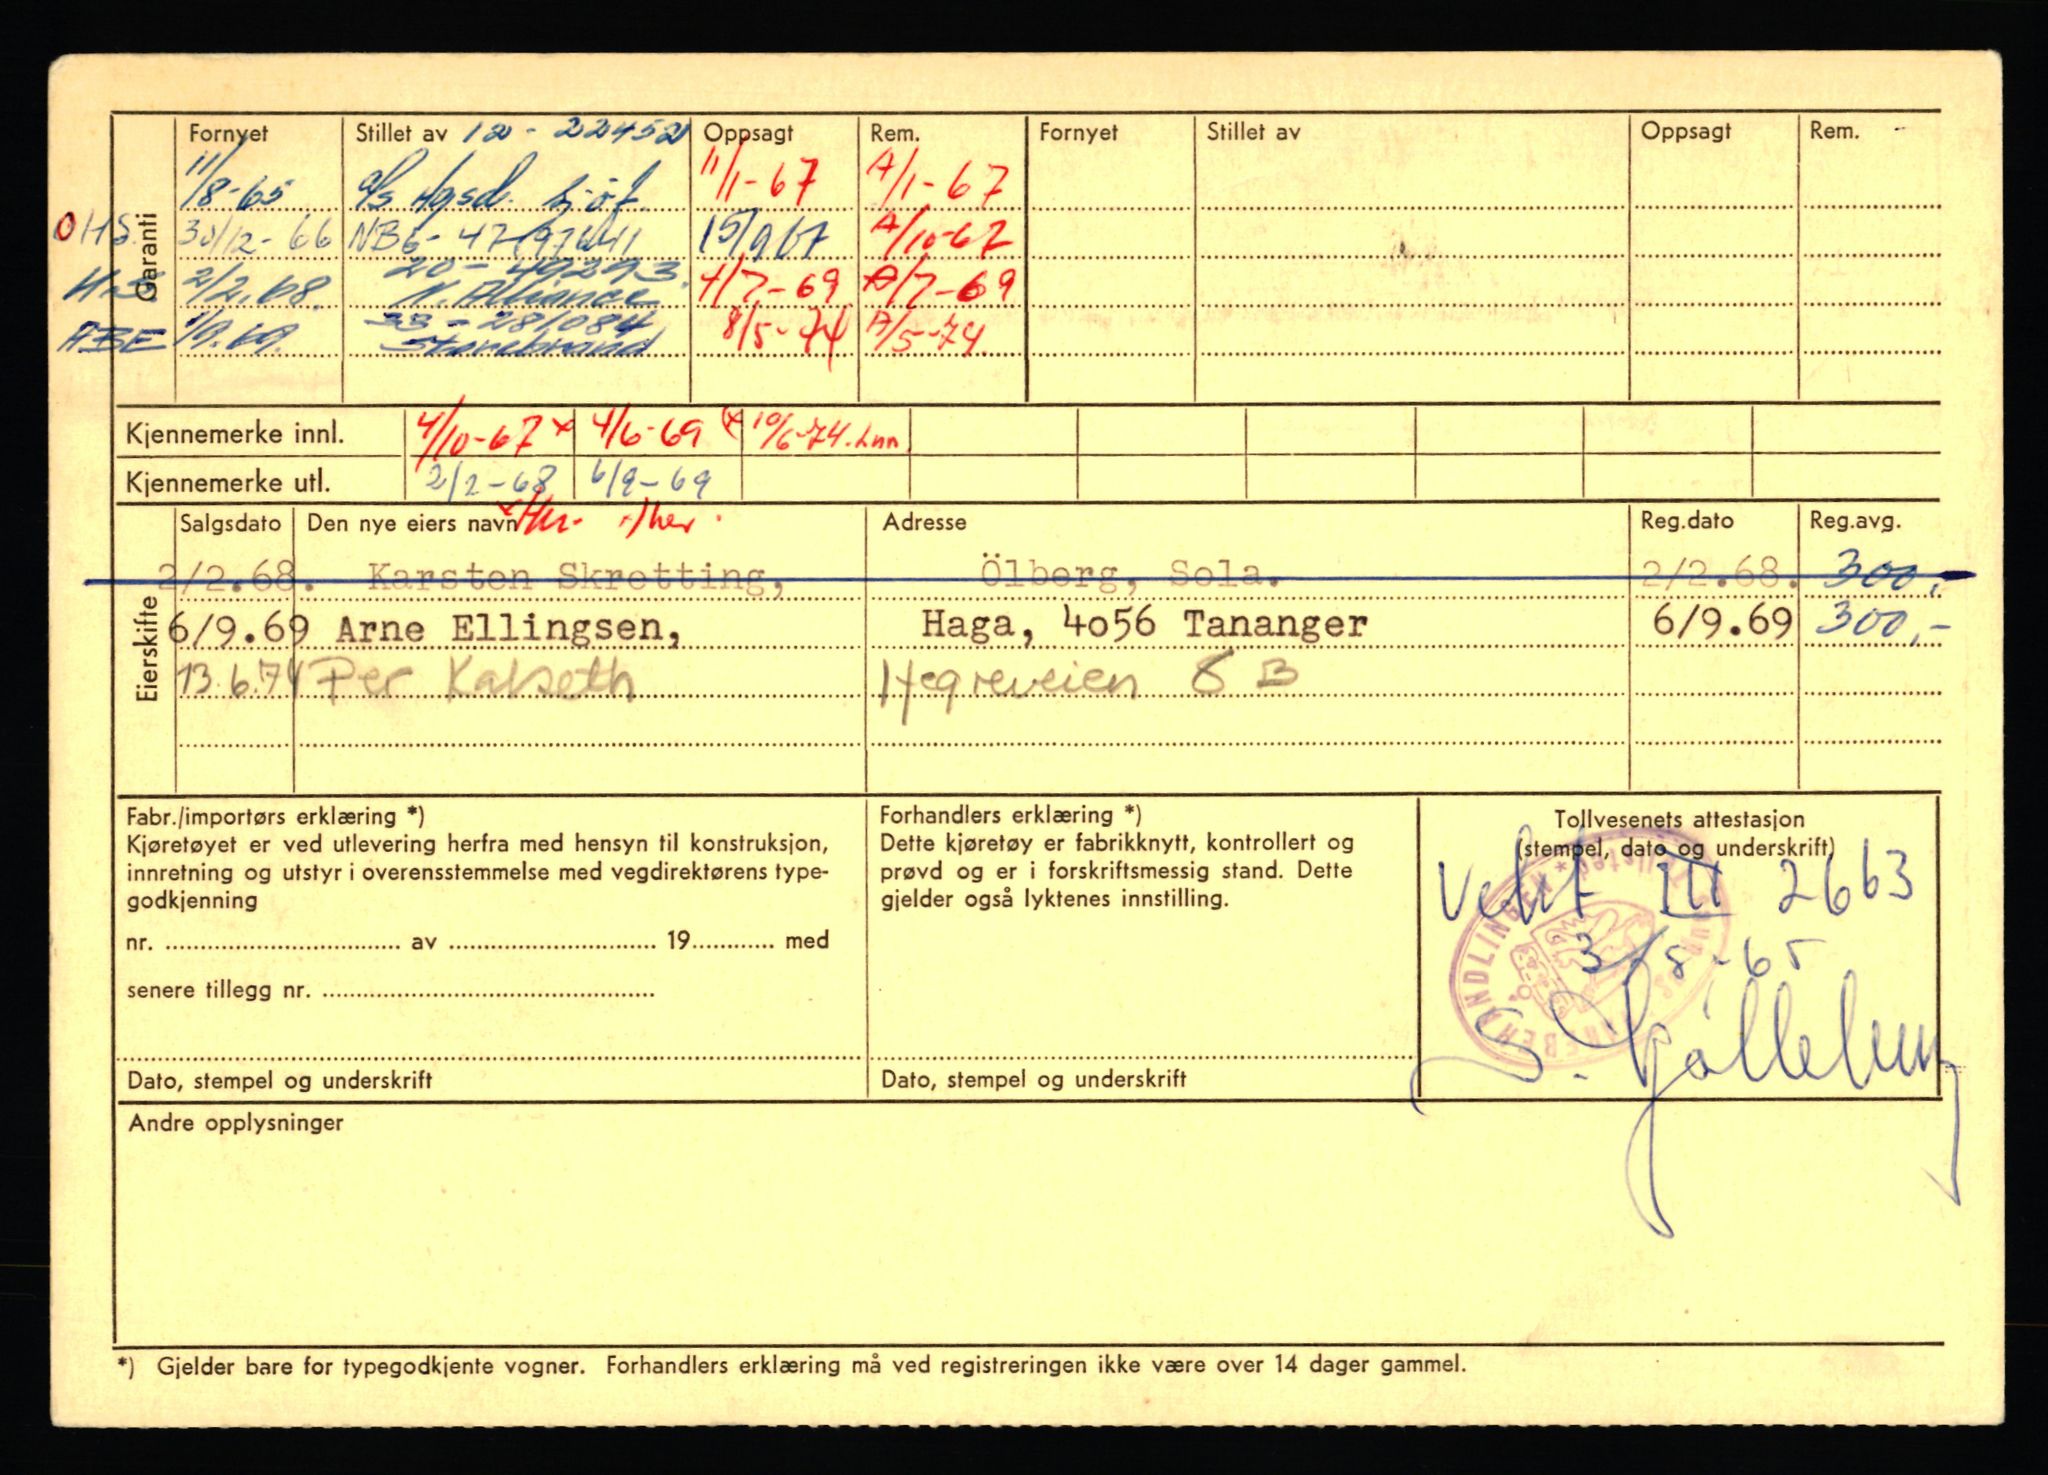 Garanti
Fornyet Stillet av 12 - 22452 Oppsagt Rem. Fornyet Stillet av Oppsagt Rem.
11/8-65 11/1-67 A/1-67
30/12-66 15/9 67 A/10-67
2/2.68. 20-49293. N. Alliance 4/7-69 A/7-69
ABE 1/9.69. 33-281084 Storebrand 8/5-74 A/5-74
Kjennemerke innl. 4/10-67 x 4/6-69 (x 10/6-74. Lnn.
Kjennemerke utl. 2/2-68 6/9-69
Eierskifte
Salgsdato Den nye eiers navn Adresse Reg.dato Reg.avg.
2/2.68. Karsten Skretting, Ölberg, Sola. 2/2.68. 300,-
6/9.69 Arne Ellingsen, Haga, 4o56 Tananger 6/9.69 300,-
13.6.74 Per Kalseth Hegreveien 8 B
Fabr./importørs erklæring *)
Kjøretøyet er ved utlevering herfra med hensyn til konstruksjon,
innretning og utstyr i overensstemmelse med vegdirektørens type-
godkjenning
nr. .......... av .......... 19.......... med
senere tillegg nr. ..........
Dato, stempel og underskrift
Forhandlers erklæring *)
Dette kjøretøy er fabrikknytt, kontrollert og
prøvd og er i forskriftsmessig stand. Dette
gjelder også lyktenes innstilling.
Dato, stempel og underskrift
Tollvesenets attestasjon
(stempel, dato og underskrift)
III 2663
3/8-65
Andre opplysninger
*) Gjelder bare for typegodkjente vogner. Forhandlers erklæring må ved registreringen ikke være over 14 dager gammel.